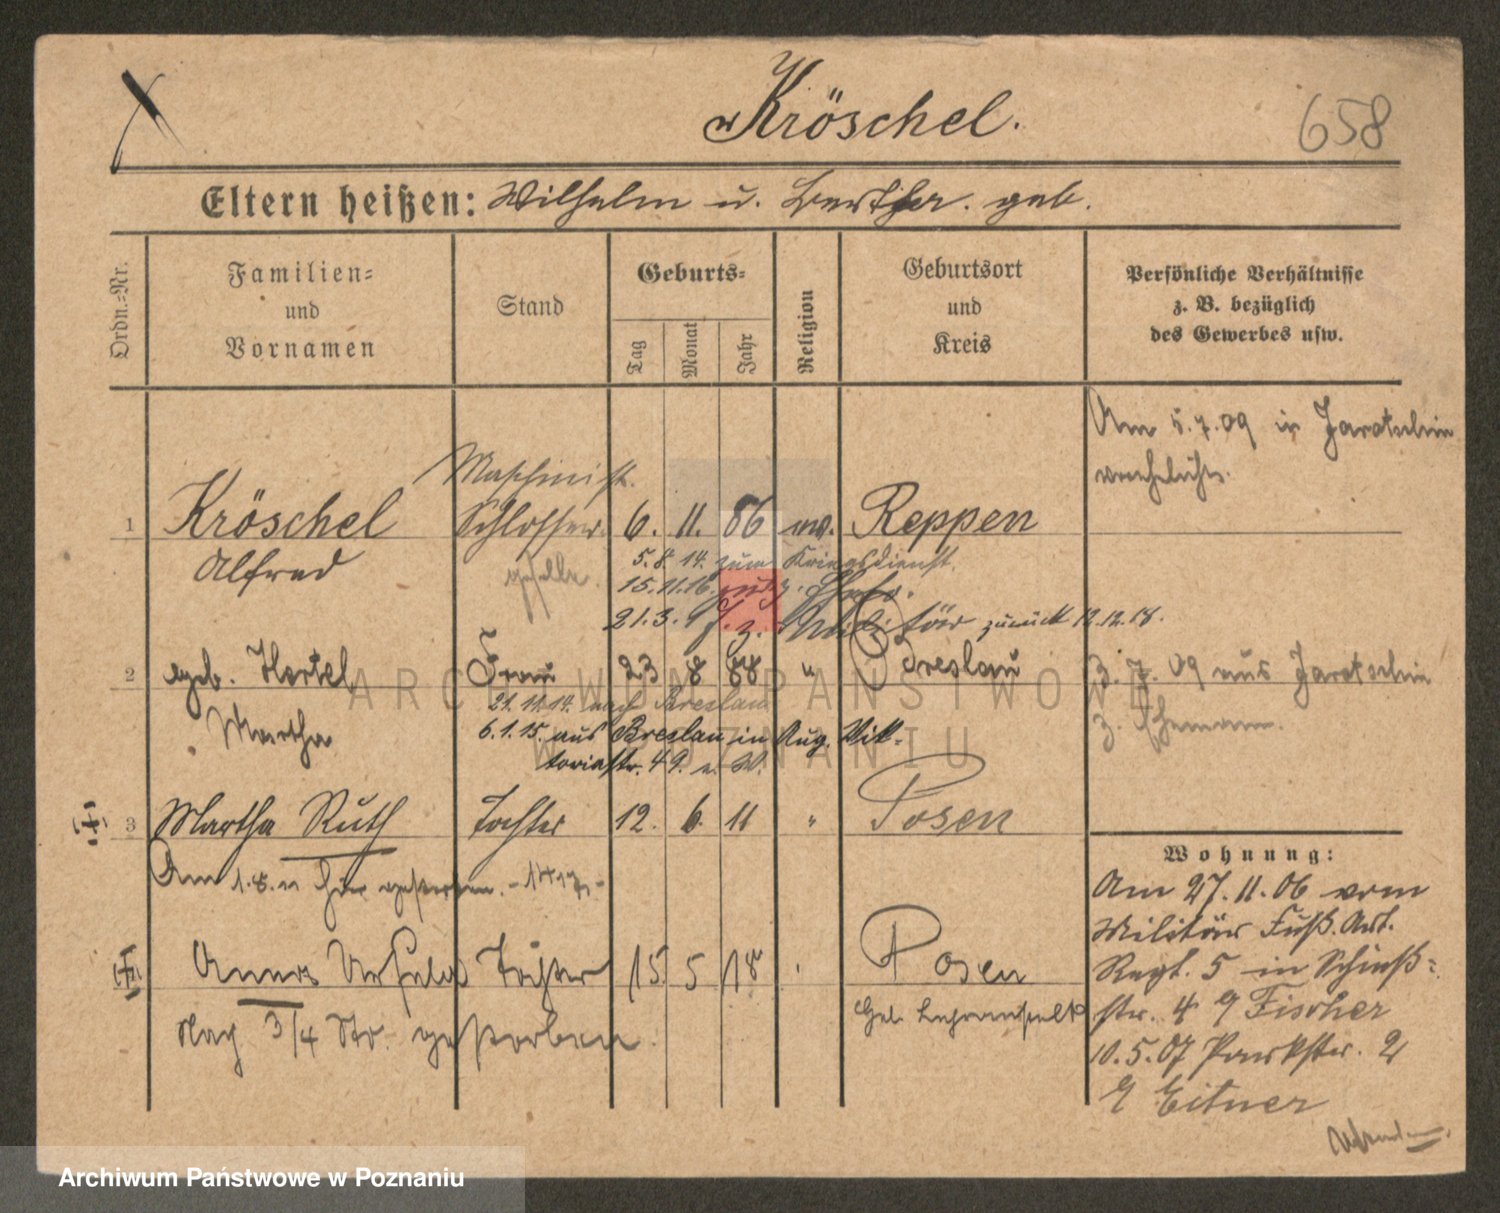 Kröschel.
658
Eltern heißen: Wilhelm u. Bertha. geb.
Ordn.-Nr.
Familien-
und
Vornamen
Stand
Geburts-
Tag
Monat
Jahr
Religion
Geburtsort
und
Kreis
Persönliche Verhältnisse
z. B. bezüglich
des Gewerbes usw.
Am 5.7.09 in Jarotschin
verehelicht.
Maschinist.
1 Kröschel Schlosser 6. 11. 86 ev. Reppen
Alfred geselle.
5.8.14. zum Kriegsdienst.
15.11.16. zurück
21.3. z. Militär zurück 12.12.18.
2 geb. Hertel Frau 23 8 88 " Breslau
3.7.09 aus Jarotschin
z. Ehemann.
Martha
21.11.14. nach Breslau
6.1.15. aus Breslau in Aug. Vik-
toriastr. 49.
3 Martha Ruth Tochter 12. 6. 11 " Posen
Am 1.8.11 hier gestorben.
Ursula Tochter 15. 5 18 Posen
Nach 3/4 Std. gestorben
Wohnung:
Am 27.11.06 vom
Militär Fuß. Art.
Regt. 5 in Schieß-
str. 4 Fischer
10.5.07 Parkstr. 2
Eitner
ARCHIWUM PAŃSTWOWE
W POZNANIU
Archiwum Państwowe w Poznaniu